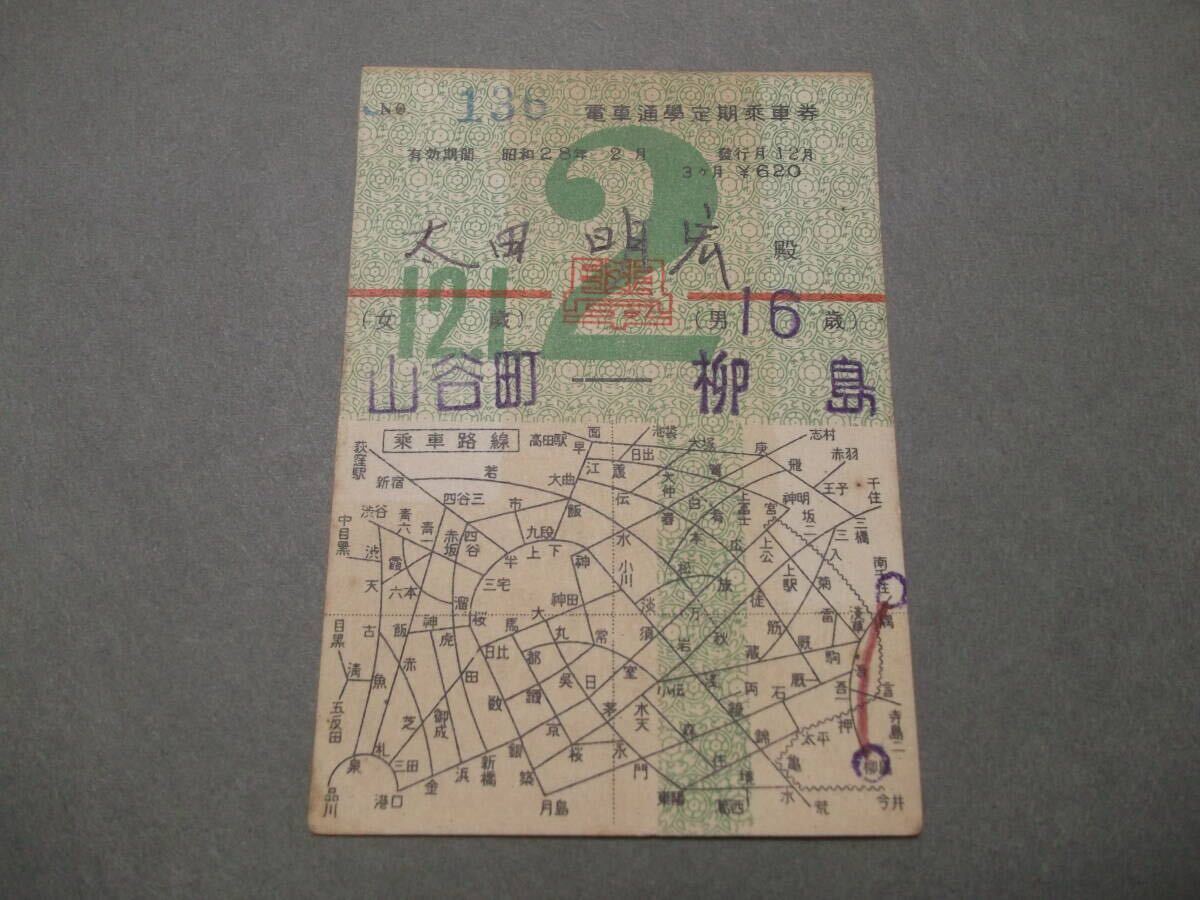 No. 136 電車通學定期乘車券
有効期間 昭和28年 2月 發行月 12月
3ヶ月 ¥620
太田 明宏 殿
2
學
12.1
(女 歳) (男 16 歳)
山谷町 — 柳島
乘車路線
高田駅 面 池袋 志村
早 日出 大塚 庚
荻窪駅 新宿 若 大曲 江 護 飛 赤羽
四谷三 市 飯 伝 大仲 王子 千住
渋谷 青六 青一 九段 白 上富士 宮 神明 坂二 三橋
中目黒 赤坂 四谷 半 上 下 水 本 広 上公 三入 南千住
渋 霞 三宅 神 小川 旅 上駅 菊
天 六本 溜 神田 淡 万 徒 雷 浅草
目黒 古 飯 神 虎 桜 馬 大 丸 常 須 秋 筋 厩 駒
清 赤 日比 都 室 岩 蔵 吾
魚 田 数 呉 日 小伝 両 石 厩 吾一 言
五反田 芝 御成 京 茅 水天 錦 太平 押 寺島二
札 銀 桜 永 森 亀 柳島
泉 三田 浜 新橋 築 門 住
品川 港口 金 月島 東陽 葛西 水 荒 今井